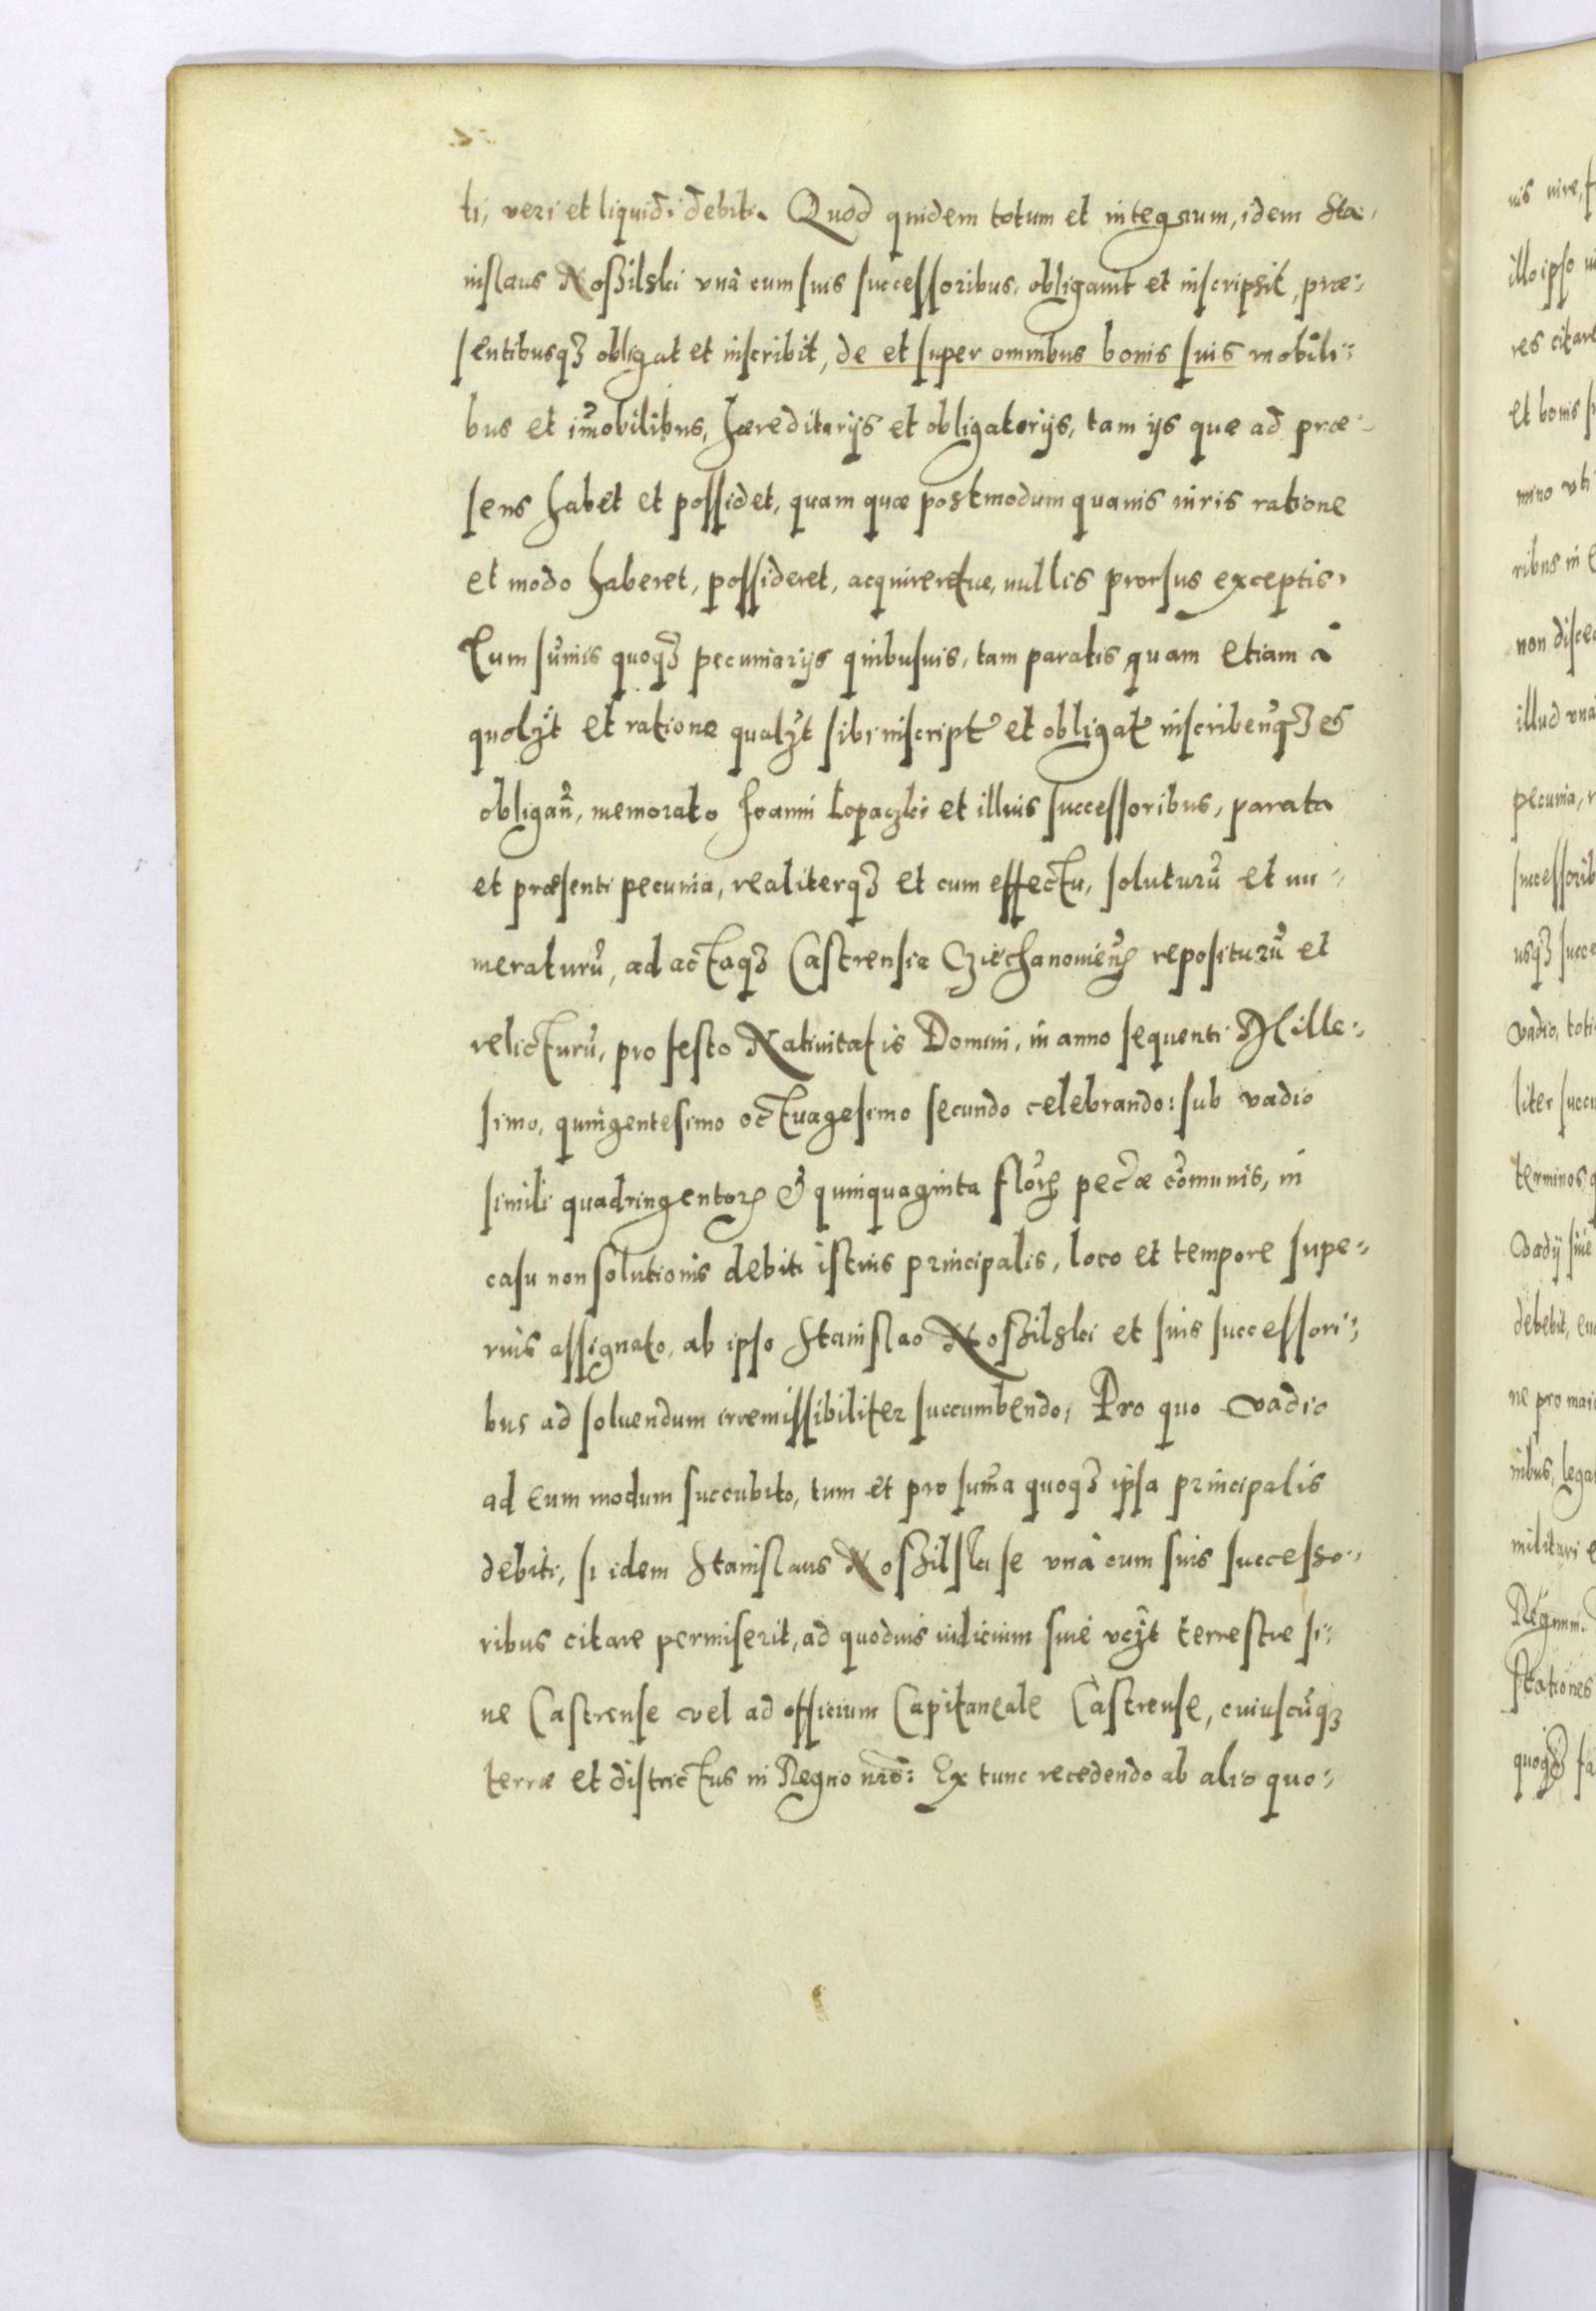 ti, veri et liquidi debiti. Quod quidem totum et integrum, idem Sta-
nislaus Noszilski vnà cum suis successoribus, obligauit et inscripsit, præ-
sentibusqꝫ obligat et inscribit, de et super omnibus bonis suis mobili-
bus et im̃obilibus, hæreditarijs et obligatorijs, tam ijs quæ ad præ-
sens habet et possidet, quam quæ postmodum quauis iuris ratione
et modo haberet, possideret, acquireretue, nullis prorsus exceptis,
Cum sum̃is quoqꝫ pecuniarijs quibusuis, tam paratis quam etiam à
quolꝫt et ratione qualꝫt sibi inscript̃ et obligat̃ inscribenꝫqꝫ et
obligañ, memorato Joanni Lopaczki et illius successoribus, parata
et præsenti pecunia, realiterqꝫ et cum effectu, soluturũ et nu-
meraturũ, ad actaqꝫ Castrensia Cziechanouieñ repositurũ et
relicturũ, pro festo Natiuitatis Domini, in anno sequenti Mille-
simo, quingentesimo octuagesimo secundo celebrando: sub vadio
simili quadringentorꝫ & quinquaginta florꝫ pecæ com̃unis, in
casu non solutionis debiti istius principalis, loco et tempore supe-
rius assignato, ab ipso Stanislao Noszilski et suis successori-
bus ad soluendum irremissibiliter succumbendo, Pro quo vadio
ad eum modum succubito, tum et pro sum̃a quoqꝫ ipsa principalis
debiti, si idem Stanislaus Noszilski se vnà cum suis successo-
ribus citare permiserit, ad quoduis iudicium siue vcꝫt terrestre si-
ue Castrense vel ad officium Capitaneale Castrense, cuiuscũqꝫ
terræ et districtus in Regno nr̃o: Ex tunc recedendo ab alio quo-